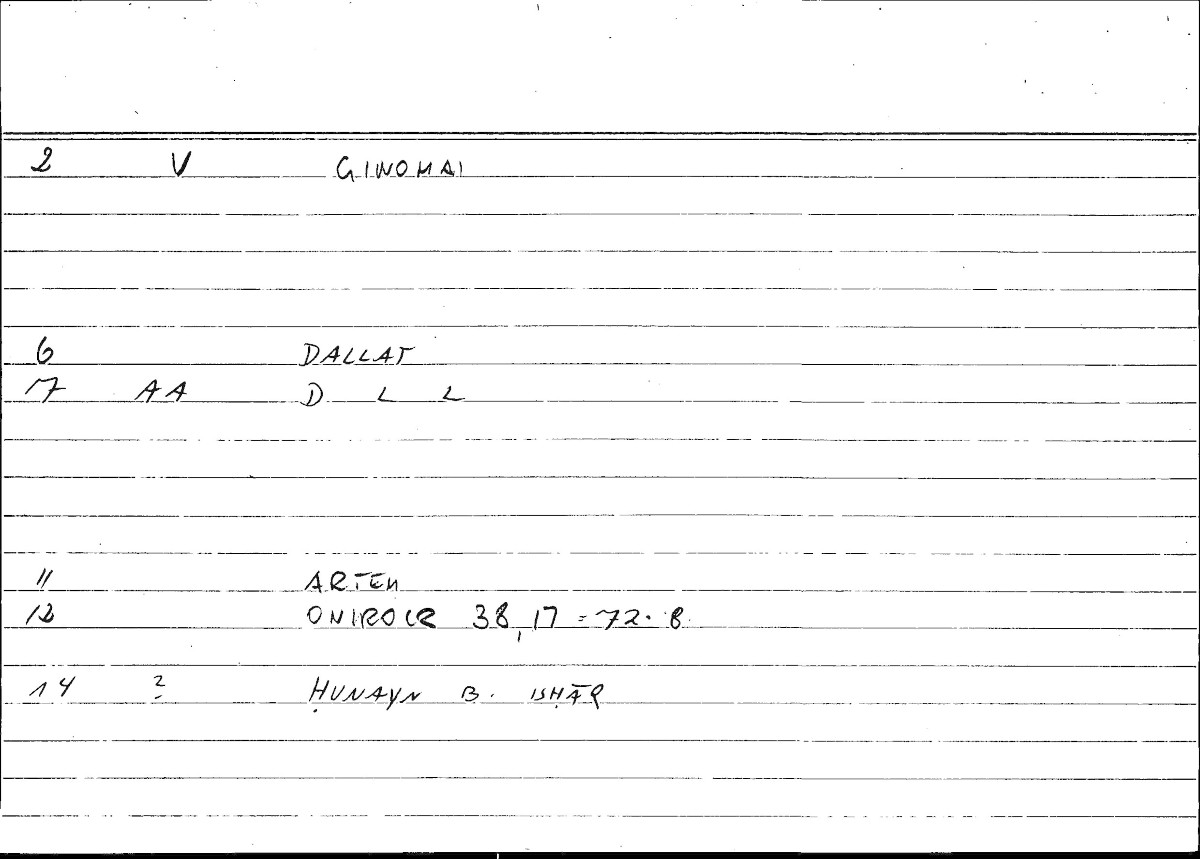 2 V GINOMAI
6 DALLAT
17 AA D L L
11 ARTEM
12 ONIROCR 38,17 = 72.8
14 2 ḤUNAYN B. ISḤĀQ